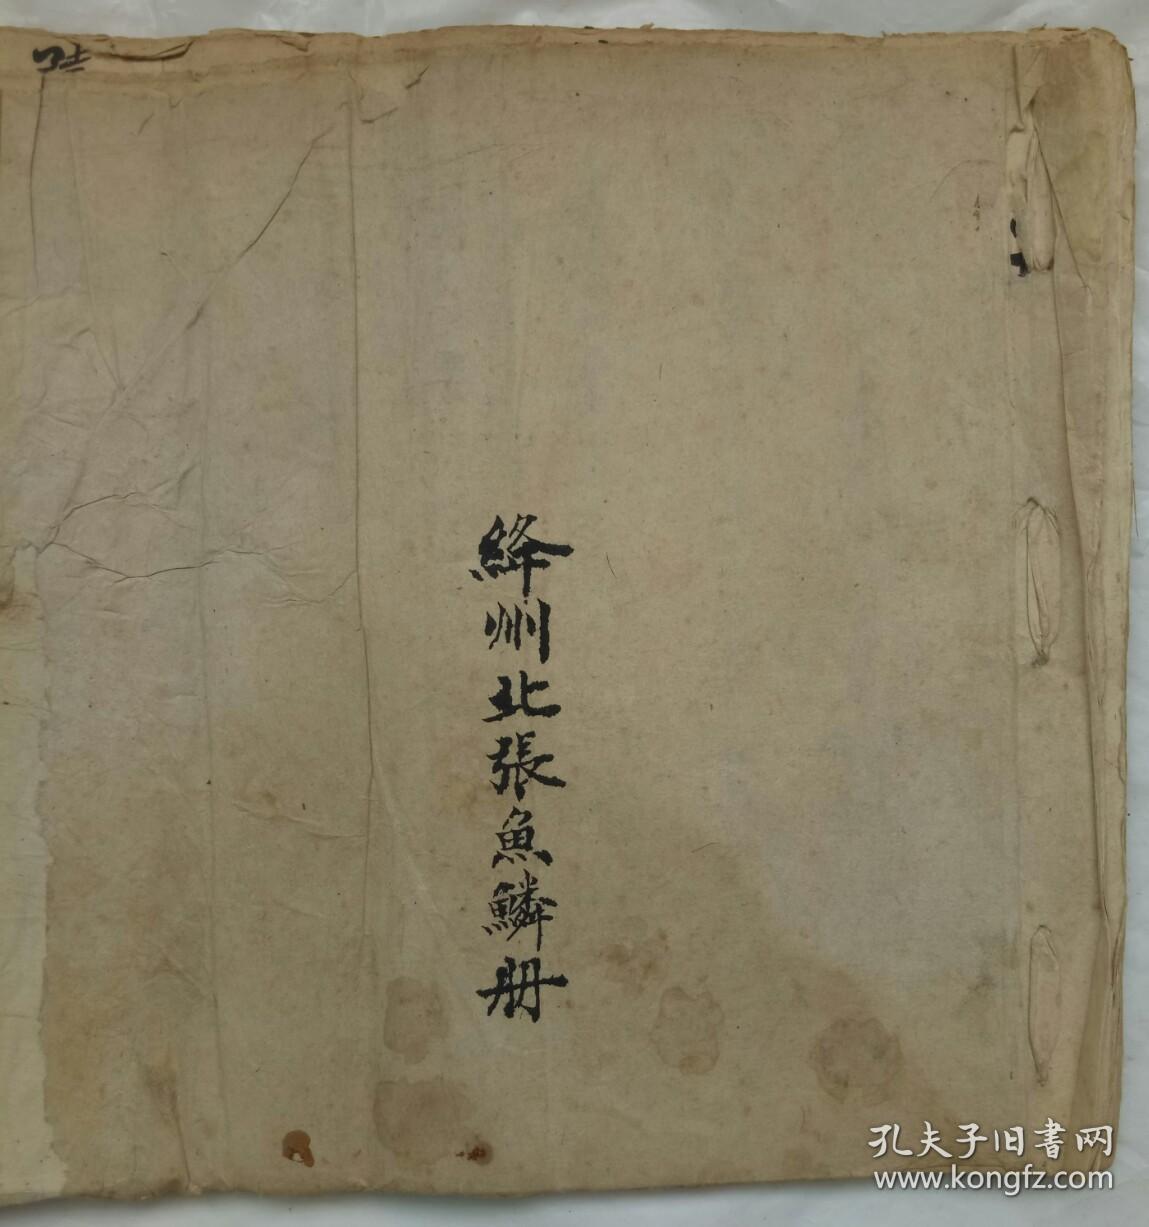 絳州北張魚鱗册
孔夫子旧書网
www.kongfz.com